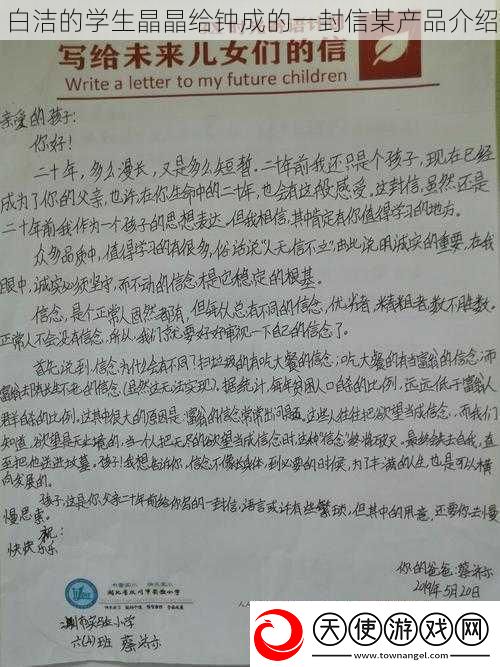 白洁的学生晶晶给钟成的一封信某产品介绍
写给未来儿女们的信
Write a letter to my future children
亲爱的孩子：
你好！
二十年，多么漫长，又是多么短暂。二十年前我还只是个孩子，现在已经
成为了你的父亲，也许在你生命中的二十年，也会有这般感受。这封信，虽然还是
二十年前我作为一个孩子的思想表达，但我相信，其中肯定有你值得学习的地方。
众多品质中，值得学习的有很多，俗话说"人无信不立"，由此说明诚实的重要，在我
眼中，诚实必须坚守，而不动的信念才是它稳定的根基。
信念，是个正常人固然都有，但每从总有不同的信念，优者，精粗者数不胜数。
正常人不会没有信念，所以，我们就要好好审视一下自己的信念了。
首先说到信念为什么会有不同？扫垃圾的有吃大餐的信念；吃大餐的有当富翁的信念；而
富翁却有长生不老的信念（虽然这无法实现）。据统计，每年贫困人口自杀的比例，远远低于富人
群自杀的比例。这其中很大的原因是：富翁的信念常常出问题。这些人往往把欲望当成信念，而我们
知道，欲望是无止境的，当一个人把无尽的欲望当成信念时，这种"信念"终将破灭。最终会失去自我，直
至把他送进坟墓。孩子！我想告诉你，信念不像身体，到必要的时候，为了丰满的人生，也是可以横
向发展的。
孩子，这是你父亲二十年前给你写的一封信，语言或许有些繁琐，但其中的用意，还要你去慢
慢思索。
祝：
快快乐乐
你的爸爸：蔡
2019年5月20日
湖北省汉川市实验小学
市实验小学
六(4)班 蔡
天使游戏网